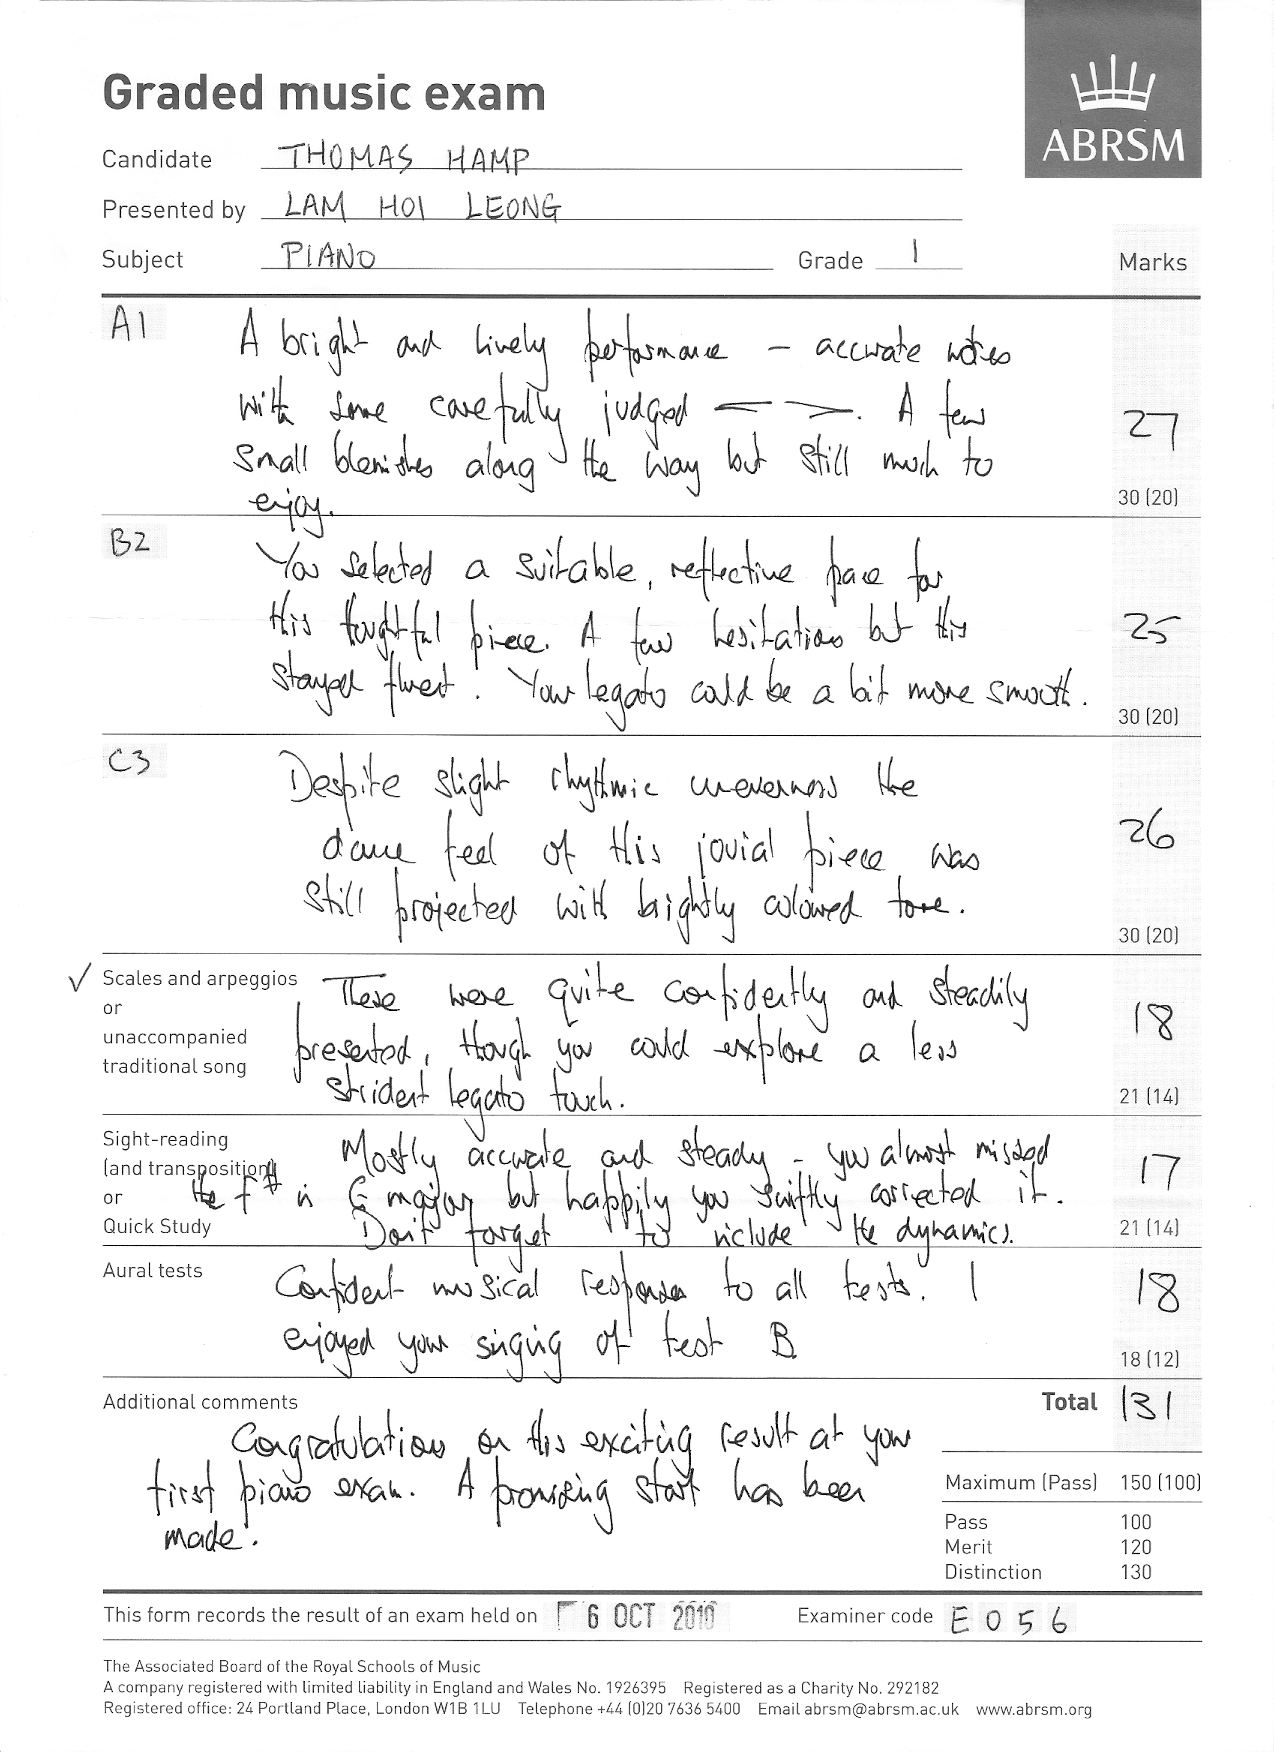 Graded music exam
ABRSM
Candidate THOMAS HAMP
Presented by LAM HOI LEONG
Subject PIANO Grade 1 Marks
A1 A bright and lively performance – accurate notes
with some carefully judged < >. A few
small blemishes along the way but still much to
enjoy.
27
30 (20)
B2 You selected a suitable, reflective pace for
this thoughtful piece. A few hesitations but this
stayed fluent. Your legato could be a bit more smooth.
25
30 (20)
C3 Despite slight rhythmic unevenness the
dance feel of this jovial piece was
still projected with brightly coloured tone.
26
30 (20)
✓ Scales and arpeggios
or
unaccompanied
traditional song
These were quite confidently and steadily
presented, though you could explore a less
strident legato touch.
18
21 (14)
Sight-reading
(and transposition)
or
Quick Study
Mostly accurate and steady – you almost missed
the F# in G major but happily you swiftly corrected it.
Don't forget to include the dynamics.
17
21 (14)
Aural tests
Confident musical responses to all tests. I
enjoyed your singing of test B
18
18 (12)
Additional comments
Congratulations on this exciting result at your
first piano exam. A promising start has been
made.
Total 131
Maximum (Pass) 150 (100)
Pass 100
Merit 120
Distinction 130
This form records the result of an exam held on 6 OCT 2010 Examiner code E056
The Associated Board of the Royal Schools of Music
A company registered with limited liability in England and Wales No. 1926395 Registered as a Charity No. 292182
Registered office: 24 Portland Place, London W1B 1LU Telephone +44 (0)20 7636 5400 Email abrsm@abrsm.ac.uk www.abrsm.org